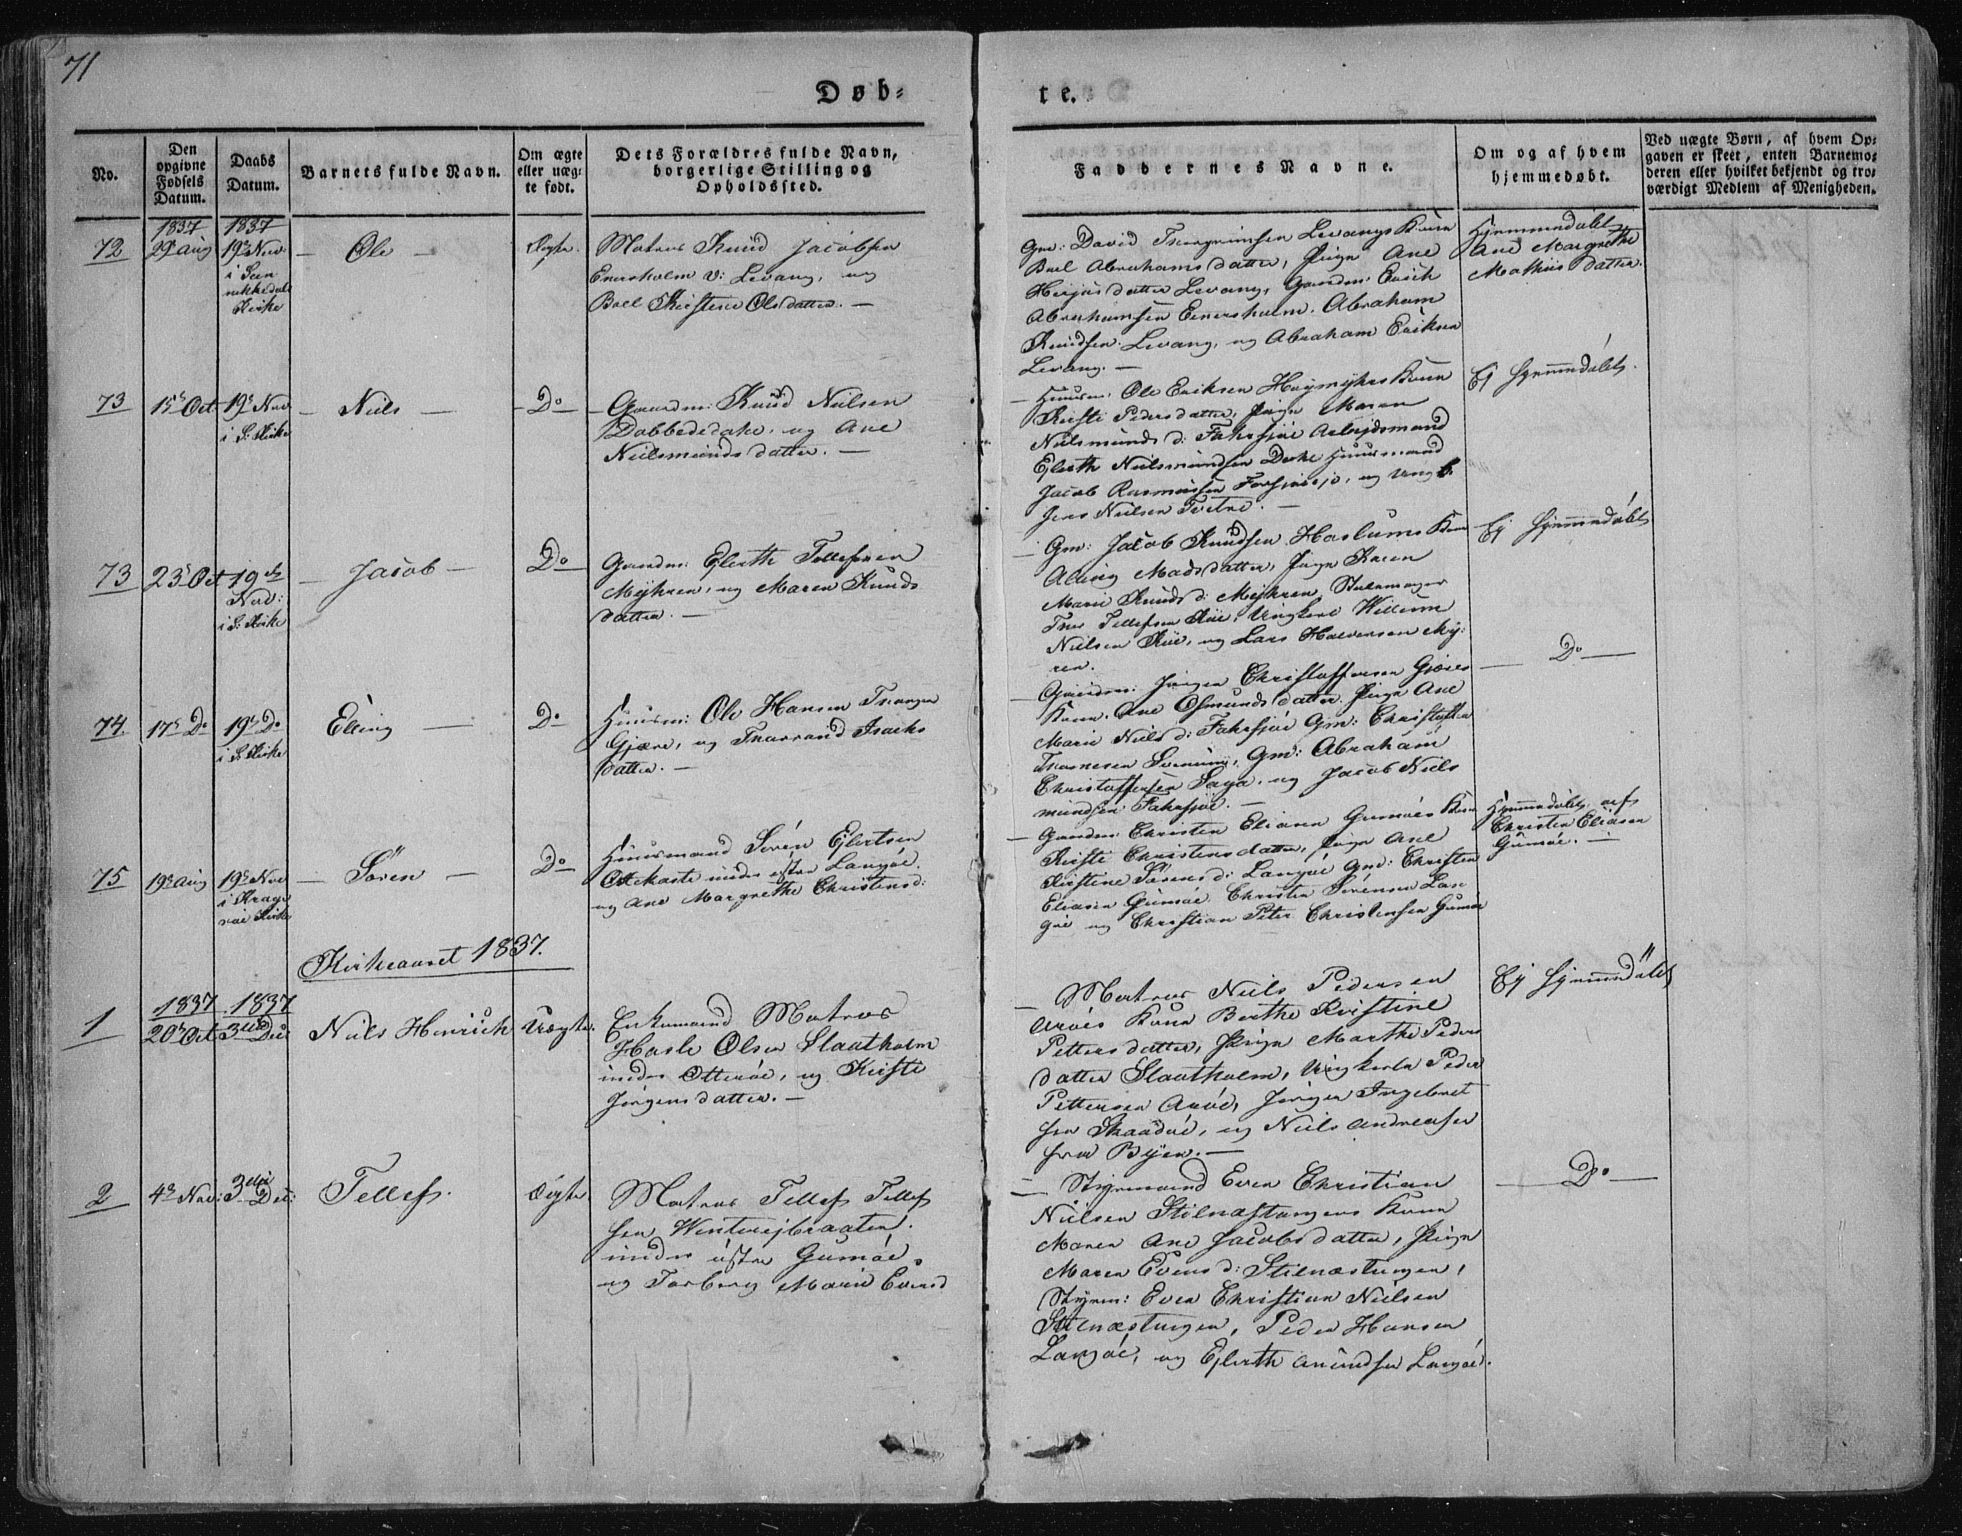 71
Døb-
te.
No.
Den opgivne Fødsels Datum.
Daabs Datum.
Barnets fulde Navn.
Om ægte eller uægte født.
Dets Forældres fulde Navn, borgerlige Stilling og Opholdssted.
Faddernes Navne.
Om og af hvem hjemmedøbt.
Ved uægte Børn, af hvem Opgaven er skeet, enten Barnemoderen eller hvilket bekjendt og troværdigt Medlem af Menigheden.
1837 1837
72
29 Aug
19de Nov.
i San
nikkedals
Kirke
Ole
Ægte
Matros Knud Jacobsen
Enersholm v: Levang, og
Boel Kirstine Olsdatter. —
Gm: David Levangs Kone
Boel Abrahamsdatter, Pige Ane
datter Levang, Gaardm: Erich
Abrahamsen Enersholm. Abraham
Knudsen Levang, og Abraham Eriksen
Levang. —
Hjemmedøbt
Ane Margrethe
Mathiis datter.
73
15de Oct
19de Nov
i S: Kirke
Niels
Do
Gaardm: Knud Nielsen
Dobbededahl, og Ane
Nielsmunds datter. —
Huusm. Ole Eriksen Kone
Kirsti Pedersdatter, Pige Maren
Nielsmunds d: Farsjøe Arbejdsmand
Ejlerth Nielsmundsen Huusmand
Jacob Rasmussen og Ungk.
Jens Nielsen Tveitne. —
Ej hjemmedøbt.
73
23de Oct
19de
Nov:
i S: Kirke
Jacob
Do
Gaardm: Ejlerth Tellefsen
Mÿhren, og Maren Knuds
datter. —
Gm: Jacob Knudsen Haslums Kone
Alling Madsdatter, Pige Karen
Marie Knuds d: Mÿhren,
Tellefsen Ungkarl Willum
Nielsen og Lars Halvorsen Mÿ:
ren.
Ej hjemmedøbt
74.
17de Do
19de Do
i S: Kirke
Elling
Do
Huusm: Ole Hansen
Gjære, og Isachs
datter. —
Gaardm: Jørgen Christoffersen Gjæres
Kone Ane Osmunds datter, Pige Ane
Marie Niels d: Farsjøe Gm: Christoffer
Gm: Abraham
Christoffersen og Jacob Niels
mundsen Farsjøe. —
Do
75
19de Aug
19de Nov
i Krage
røe Kirke
Søren
Do
Huusmand Søren Ejlertsen
under østre Langøe
og Ane Margrethe Christensd:
Gaardm: Christen Eliasen Gumøes Kone
Kirsti Christensdatter, Pige Ane
Kirstine Sørens d: Langøe Gm: Christen
Eliasen Gumøe Christen Sørensen Lan
gøe og Christian Peter Christensen Gumøe
Hjemmedøbt af
Christen Eliasen
Gumøe. —
Kirkeaaret 1837.
1837 1837
1
20de Oct
3die Dec:
Niels Henrich
Uægte.
Enkemand Matros
Olsen Slaatholm
under Otterøe, og Kirsti
Jørgensdatter. —
Matros Niels Pedersen
Arøes Kone Berthe Kristine
Pettersdatter, Pige Marthe Peders
datter Slaatholm, Ungkarl Peder
Pettersen Arøe, Jørgen Ingebret
sen Skaadøe, og Niels Andreasen
fra Byen. —
Ej hjemmedøbt
2
4de Nov:
3die Dec:
Tellef.
Ægte
Matros Tellef Tellef
sen
under østre Gumøe,
og Torborg Marie Evensd
Styrmand Even Christian
Nielsen Stilnæstangens Kone
Maren Ane Jacobsdatter, Pige
Maren Evens d: Stilnæstangen,
Styrm: Even Christian Nielsen
Stilnæstangen, Peder Hansen
Langøe, og Ejlerth Amundsen Langøe.
Do